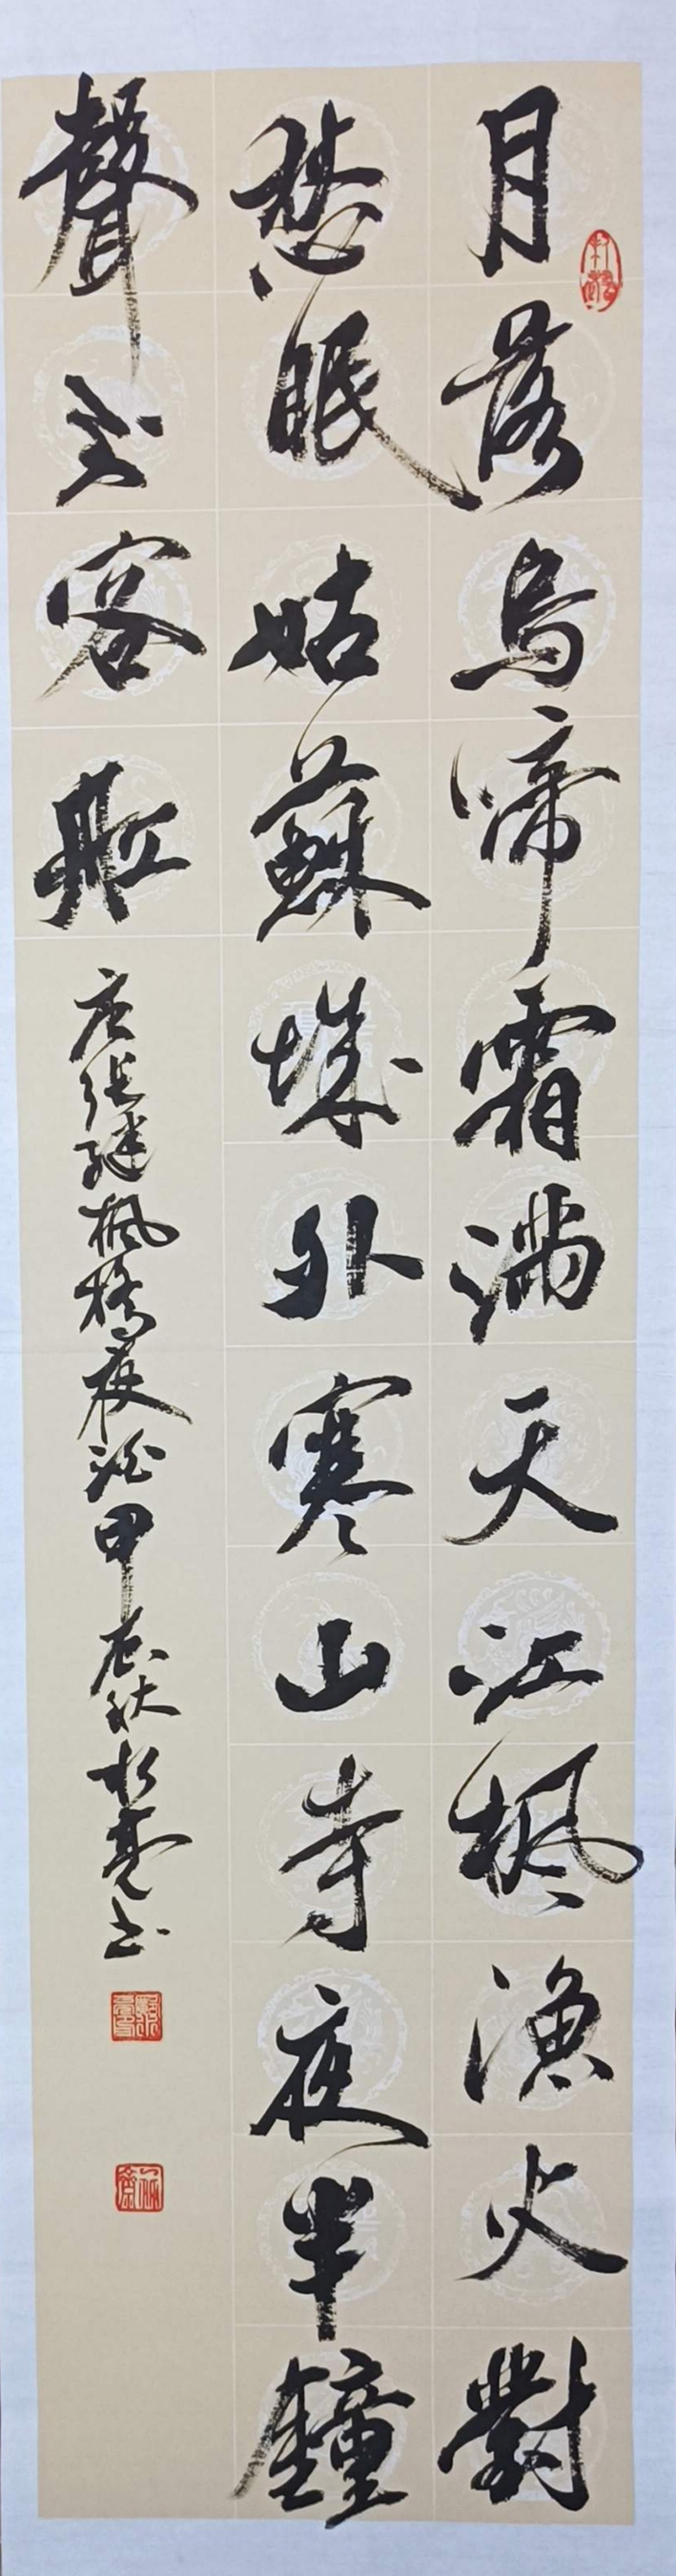 月落烏啼霜滿天江楓漁火對
愁眠姑蘇城外寒山寺夜半鐘
聲到客船
唐張繼楓橋夜泊甲辰秋水亮書